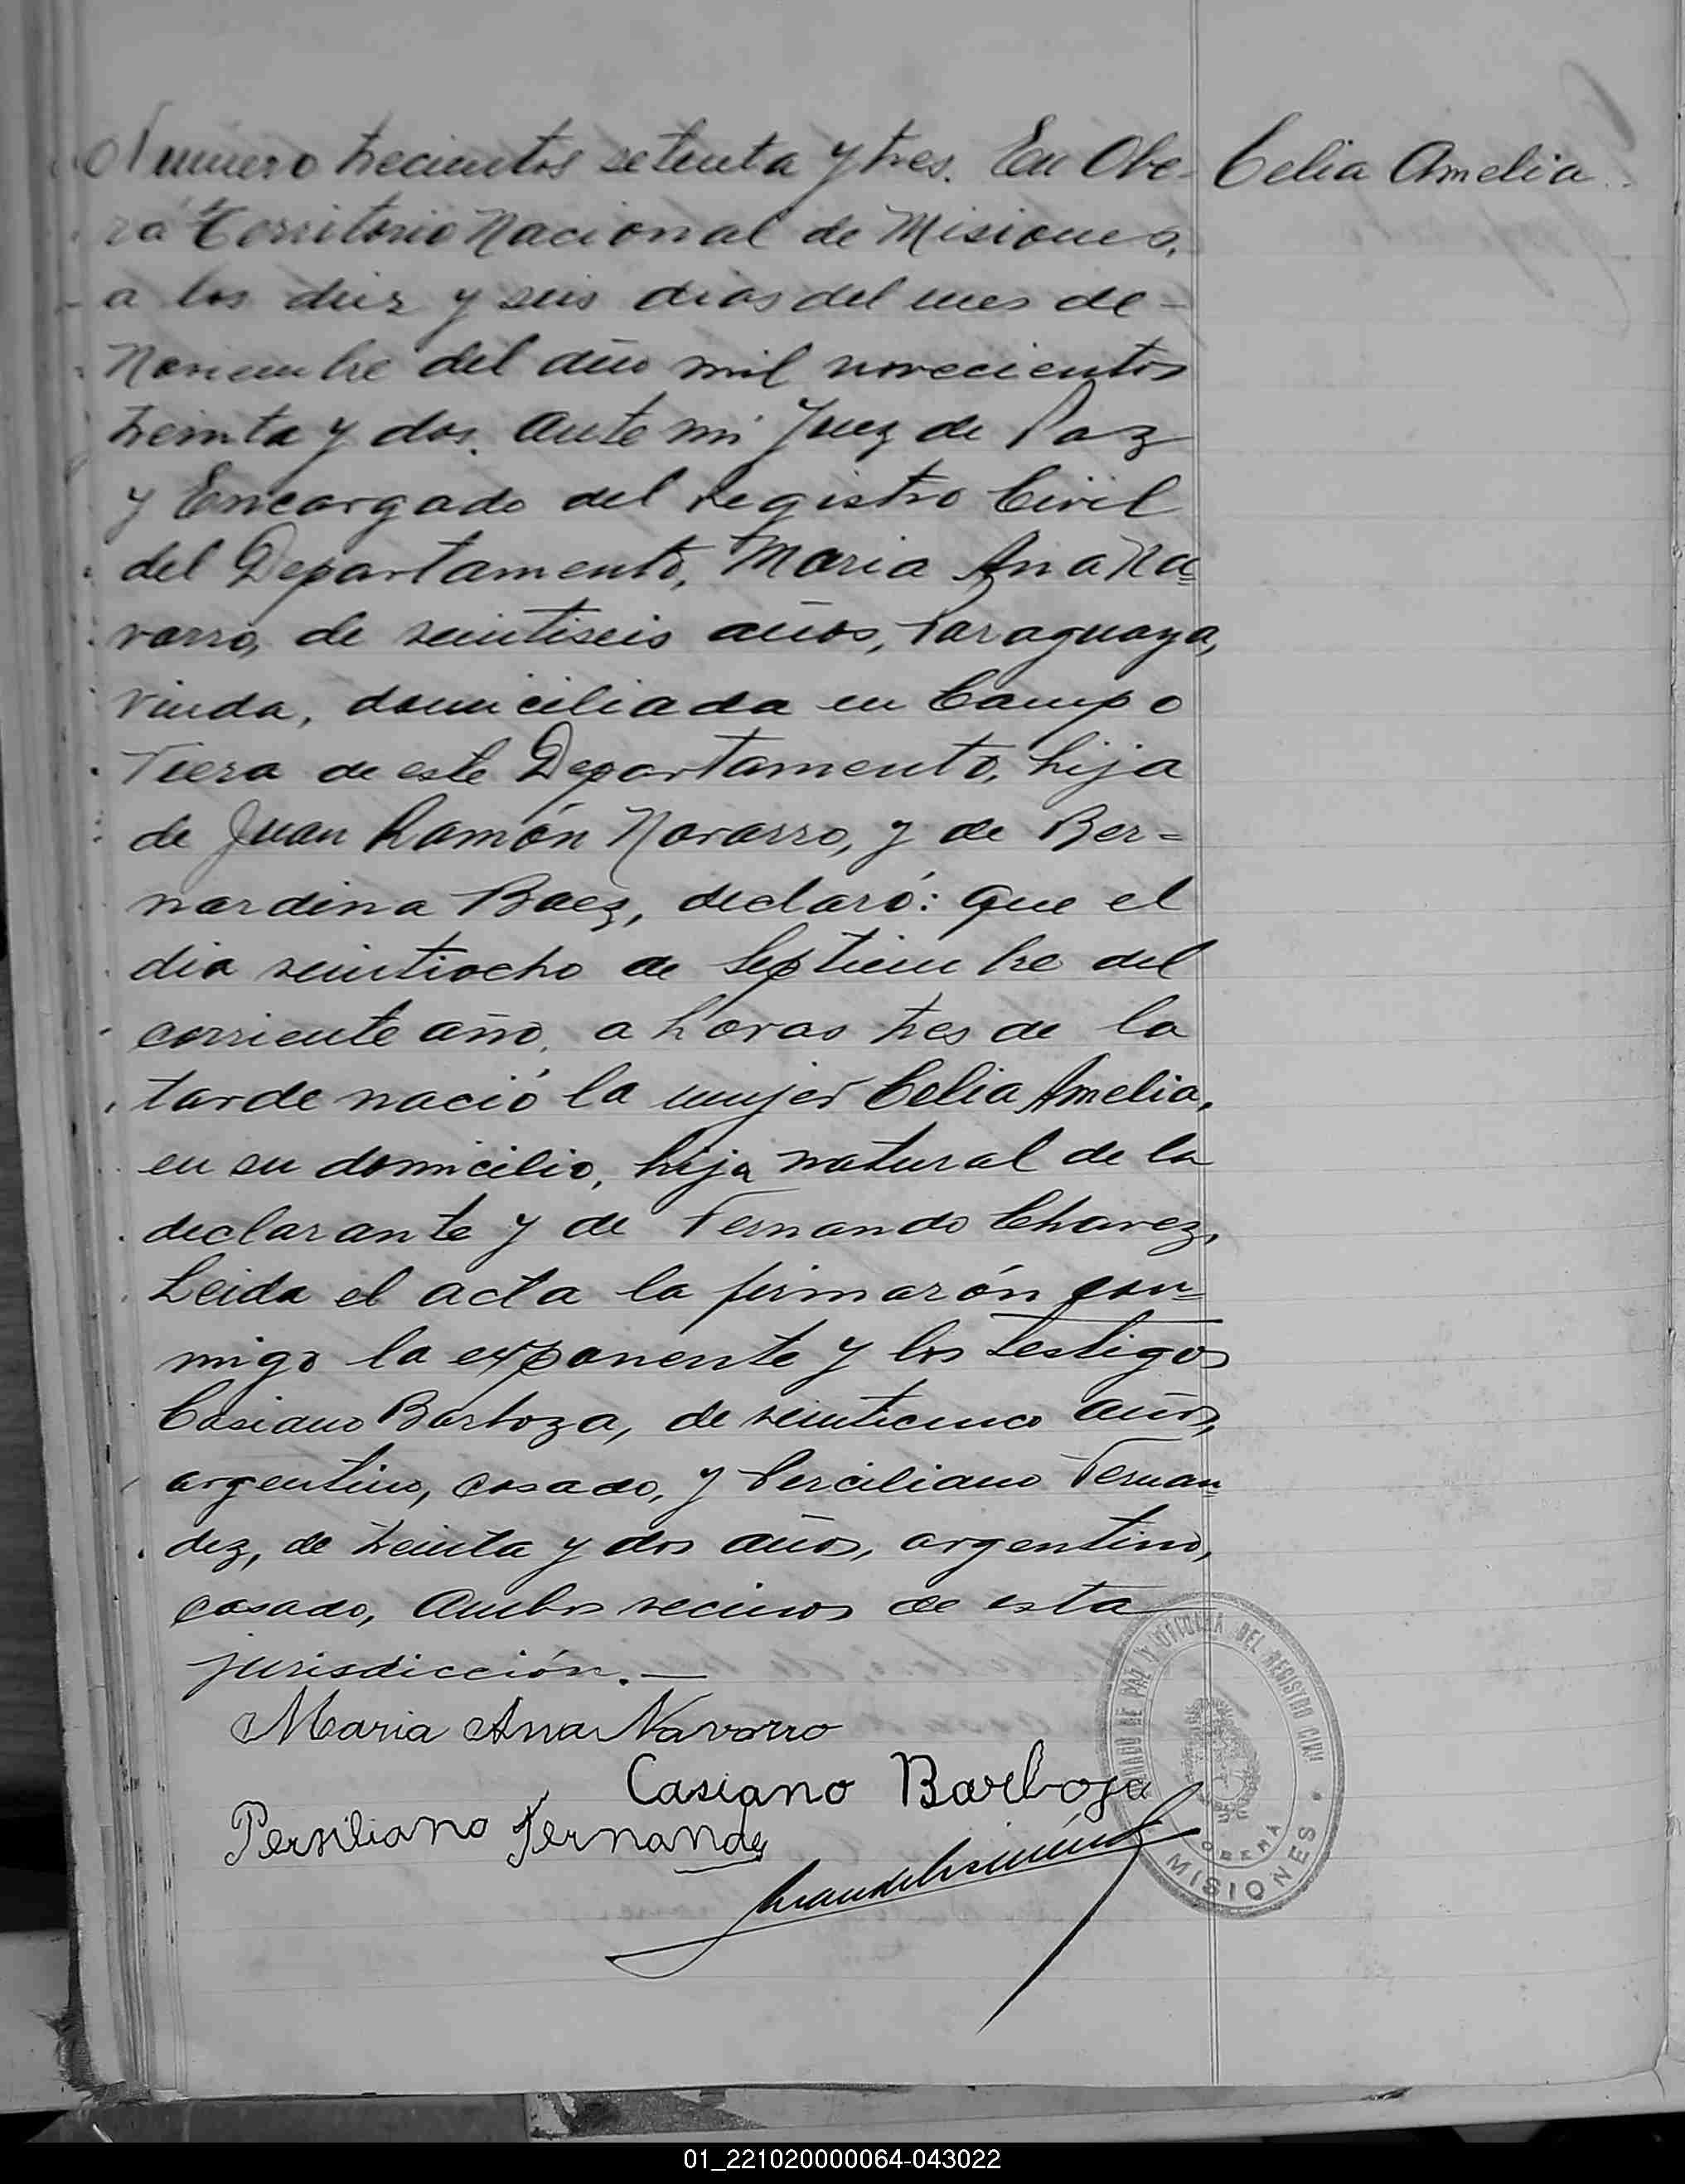 Numero trecientos setenta y tres. En Obe-
Celia Amelia
rá Territorio Nacional de Misiones,
a los diez y seis dias del mes de -
Noviembre del año mil novecientos
treinta y dos. Ante mi Juez de Paz
y Encargado del Registro Civil
del Departamento, Maria Ana Na-
varro, de veintiseis años, Paraguaya,
viuda, domiciliada en Campo
Viera de este Departamento, hija
de Juan Ramón Navarro, y de Ber=
nardina Baez, declaró: que el
dia veintiocho de Septiembre del
corriente año, a horas tres de la
tarde nació la mujer Celia Amelia,
en su domicilio, hija natural de la
declarante y de Fernando Chavez.
Leida el acta la firmarón con=
migo la exponente y los testigos
Casiano Barboza, de veinticinco años,
argentino, casado, y Perciliano Fernan=
dez, de treinta y dos años, argentino,
casado, Ambos vecinos de esta
jurisdicción. —
Maria Ana Navarro
Casiano Barboza
Persiliano Fernandez
JUZGADO DE PAZ Y OFICINA DEL REGISTRO CIVIL
OBERÁ
MISIONES
01_221020000064-043022